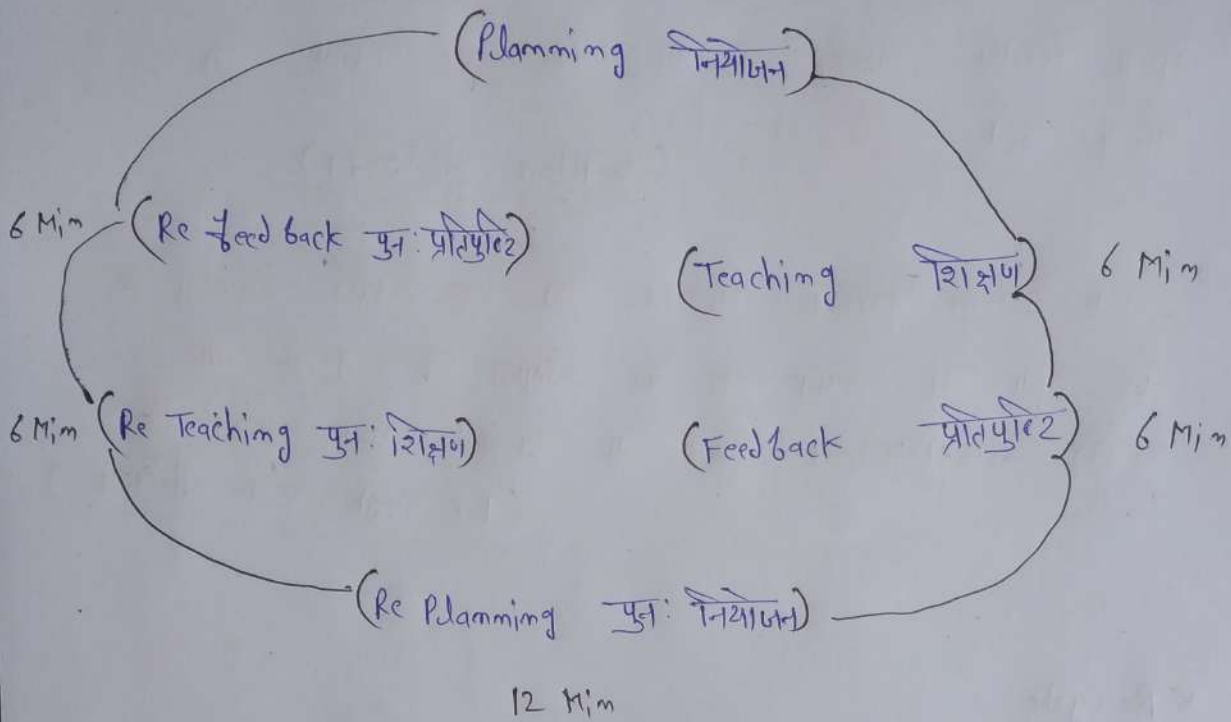 (Planning नियोजन)
6 Min (Re feed back पुन: प्रतिपुष्टि)
(Teaching शिक्षण) 6 Min
6 Min (Re Teaching पुन: शिक्षण)
(Feedback प्रतिपुष्टि) 6 Min
(Re Planning पुन: नियोजन)
12 Min